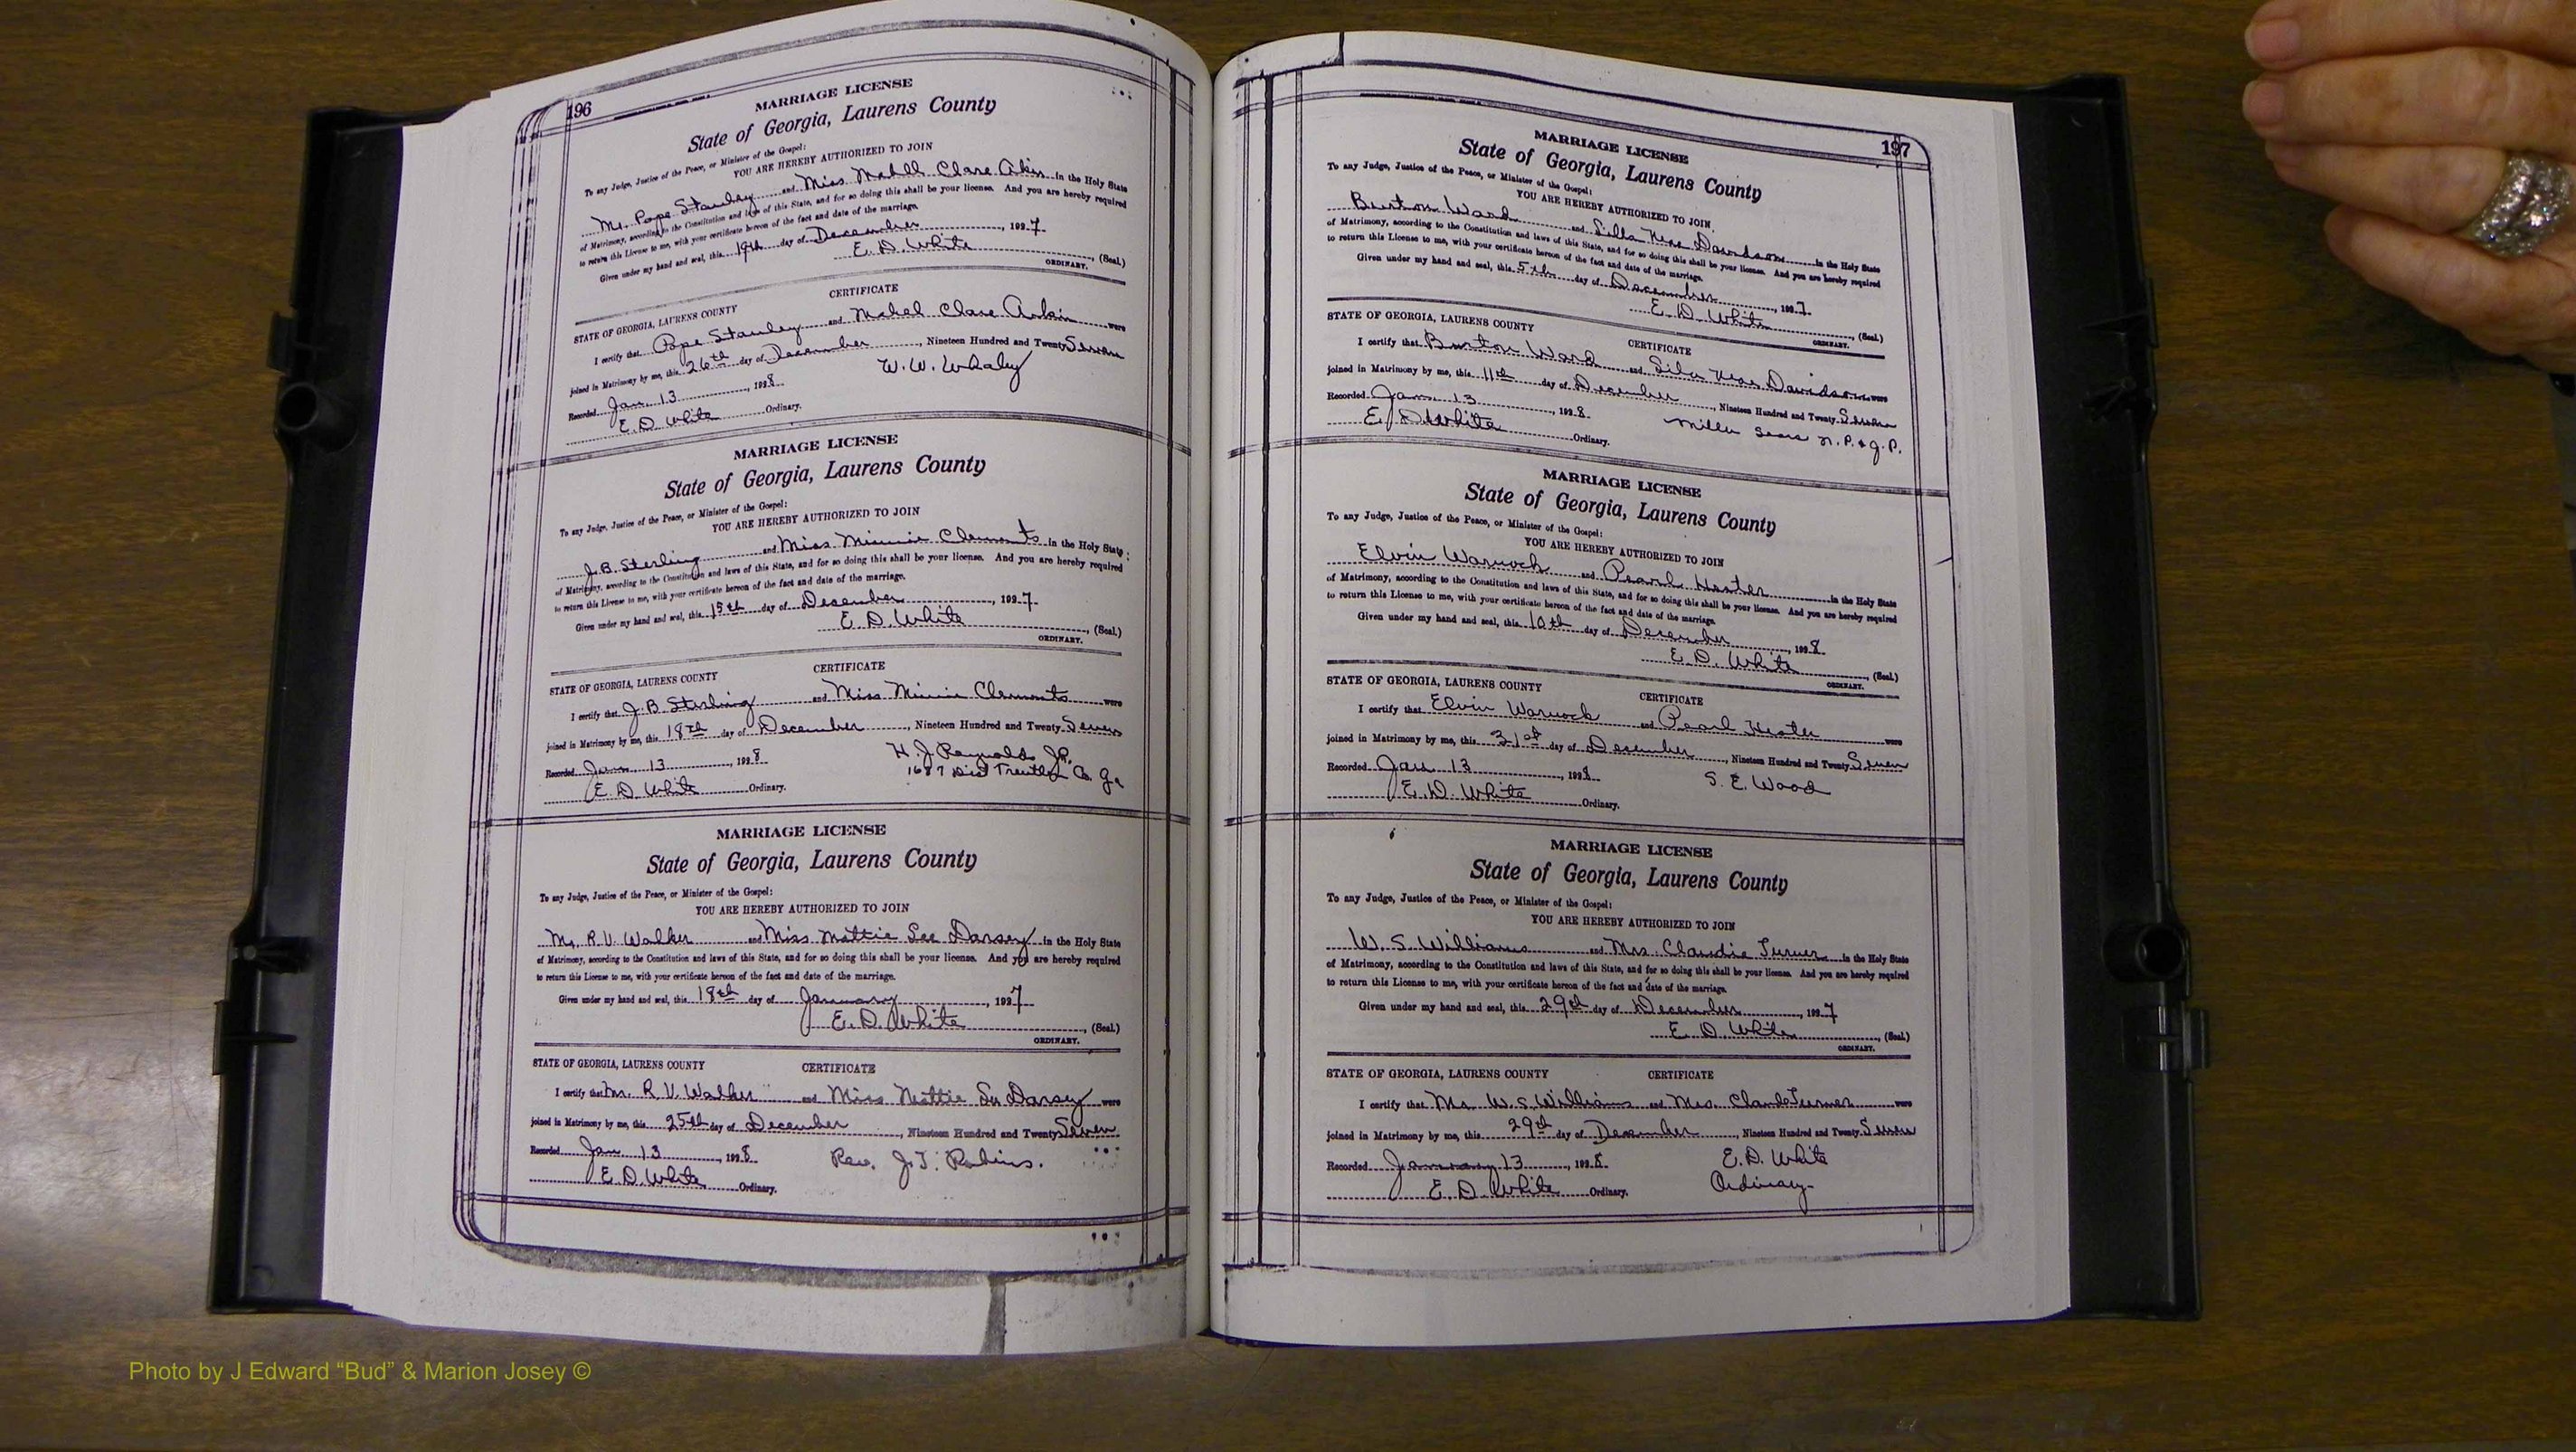 196
MARRIAGE LICENSE
State of Georgia, Laurens County
To any Judge, Justice of the Peace, or Minister of the Gospel:
YOU ARE HEREBY AUTHORIZED TO JOIN
Mr. Pope Stanley and Miss Mabell Clare Akin in the Holy State
of Matrimony, according to the Constitution and laws of this State, and for so doing this shall be your license. And you are hereby required
to return this License to me, with your certificate hereon of the fact and date of the marriage.
Given under my hand and seal, this 19th day of December, 192 7.
E. D. White (Seal.)
ORDINARY.
CERTIFICATE
STATE OF GEORGIA, LAURENS COUNTY
I certify that Pope Stanley and Mabel Clare Arkin were
joined in Matrimony by me, this 26th day of December, Nineteen Hundred and Twenty Seven
Recorded Jan. 13, 192 8. W. W. Whaley
E. D. White Ordinary.
MARRIAGE LICENSE
State of Georgia, Laurens County
To any Judge, Justice of the Peace, or Minister of the Gospel:
YOU ARE HEREBY AUTHORIZED TO JOIN
J. B. Sterling and Miss Minnie Clements in the Holy State
of Matrimony, according to the Constitution and laws of this State, and for so doing this shall be your license. And you are hereby required
to return this License to me, with your certificate hereon of the fact and date of the marriage.
Given under my hand and seal, this 15th day of December, 192 7.
E. D. White (Seal.)
ORDINARY.
CERTIFICATE
STATE OF GEORGIA, LAURENS COUNTY
I certify that J. B. Sterling and Miss Minnie Clements were
joined in Matrimony by me, this 18th day of December, Nineteen Hundred and Twenty Seven
Recorded Jan. 13, 192 8. H. J. Reynolds J.P.
1687 Dist Treutlen Co. Ga
E. D. White Ordinary.
MARRIAGE LICENSE
State of Georgia, Laurens County
To any Judge, Justice of the Peace, or Minister of the Gospel:
YOU ARE HEREBY AUTHORIZED TO JOIN
Mr. R. V. Walker and Miss Mattie Lee Darsey in the Holy State
of Matrimony, according to the Constitution and laws of this State, and for so doing this shall be your license. And you are hereby required
to return this License to me, with your certificate hereon of the fact and date of the marriage.
Given under my hand and seal, this 18th day of January, 192 7
E. D. White (Seal.)
ORDINARY.
STATE OF GEORGIA, LAURENS COUNTY CERTIFICATE
I certify that Mr. R. V. Walker and Miss Mattie Lee Darsey were
joined in Matrimony by me, this 25th day of December, Nineteen Hundred and Twenty Seven
Recorded Jan 13, 192 8. Rev. J. T. Robins.
E. D. White Ordinary.
197
MARRIAGE LICENSE
State of Georgia, Laurens County
To any Judge, Justice of the Peace, or Minister of the Gospel:
YOU ARE HEREBY AUTHORIZED TO JOIN
Burton Ward and Davidson in the Holy State
of Matrimony, according to the Constitution and laws of this State, and for so doing this shall be your license. And you are hereby required
to return this License to me, with your certificate hereon of the fact and date of the marriage.
Given under my hand and seal, this 5th day of December, 192 7.
E. D. White (Seal.)
ORDINARY.
STATE OF GEORGIA, LAURENS COUNTY
CERTIFICATE
I certify that Burton Ward and Davidson were
joined in Matrimony by me, this 11th day of December, Nineteen Hundred and Twenty Seven
Recorded Jan. 13, 192 8. N. P. & J. P.
E. D. White Ordinary.
MARRIAGE LICENSE
State of Georgia, Laurens County
To any Judge, Justice of the Peace, or Minister of the Gospel:
YOU ARE HEREBY AUTHORIZED TO JOIN
Elvin Warnock and Pearl Hester in the Holy State
of Matrimony, according to the Constitution and laws of this State, and for so doing this shall be your license. And you are hereby required
to return this License to me, with your certificate hereon of the fact and date of the marriage.
Given under my hand and seal, this 10th day of December, 192 8.
E. D. White (Seal.)
ORDINARY.
STATE OF GEORGIA, LAURENS COUNTY
CERTIFICATE
I certify that Elvin Warnock and Pearl Hester were
joined in Matrimony by me, this 31st day of December, Nineteen Hundred and Twenty Seven
Recorded Jan 13, 192 8. S. E. Wood
E. D. White Ordinary.
MARRIAGE LICENSE
State of Georgia, Laurens County
To any Judge, Justice of the Peace, or Minister of the Gospel:
YOU ARE HEREBY AUTHORIZED TO JOIN
W. S. Williams and Mrs. Claudie Turner in the Holy State
of Matrimony, according to the Constitution and laws of this State, and for so doing this shall be your license. And you are hereby required
to return this License to me, with your certificate hereon of the fact and date of the marriage.
Given under my hand and seal, this 29th day of December, 192 7
E. D. White (Seal.)
ORDINARY.
STATE OF GEORGIA, LAURENS COUNTY CERTIFICATE
I certify that Mr. W. S. Williams and Mrs. Claude Turner were
joined in Matrimony by me, this 29th day of December, Nineteen Hundred and Twenty Seven
Recorded January 13, 192 8. E. D. White
E. D. White Ordinary. Ordinary
Photo by J Edward “Bud” & Marion Josey ©